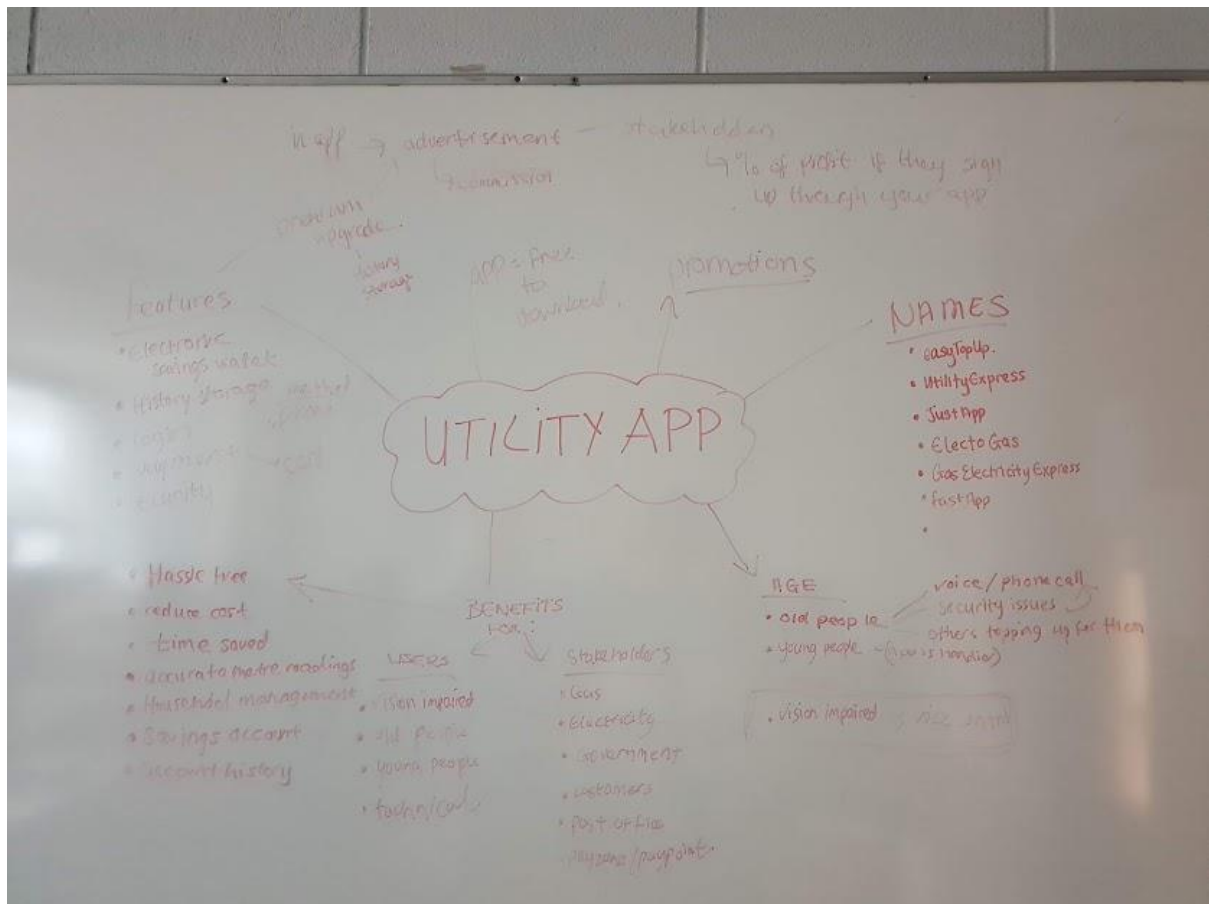 in app → advertisement — stakeholders
↳ % of profit if they sign
up through your app
↳ commission
premium
upgrade
history
storage
app = free
to
download
promotions
features
• Electronic
savings wallet
• History storage
• login
• payment
• security
NAMES
• easyTopUp.
• UtilityExpress
• JustApp
• ElectoGas
• Gas ElectricityExpress
• fastApp
•
UTILITY APP
• Hassle free
• reduce cost
• time saved
• accurate metre recordings
• Household management
• Savings account
• account history
BENEFITS
for:
USERS
• vision impaired
• old people
• young people
• technical
Stakeholders
• Gas
• Electricity
• Government
• customers
• Post office
payzone/paypoint.
AGE
• old people
voice/phone call
security issues
others topping up for them
• young people
• vision impaired